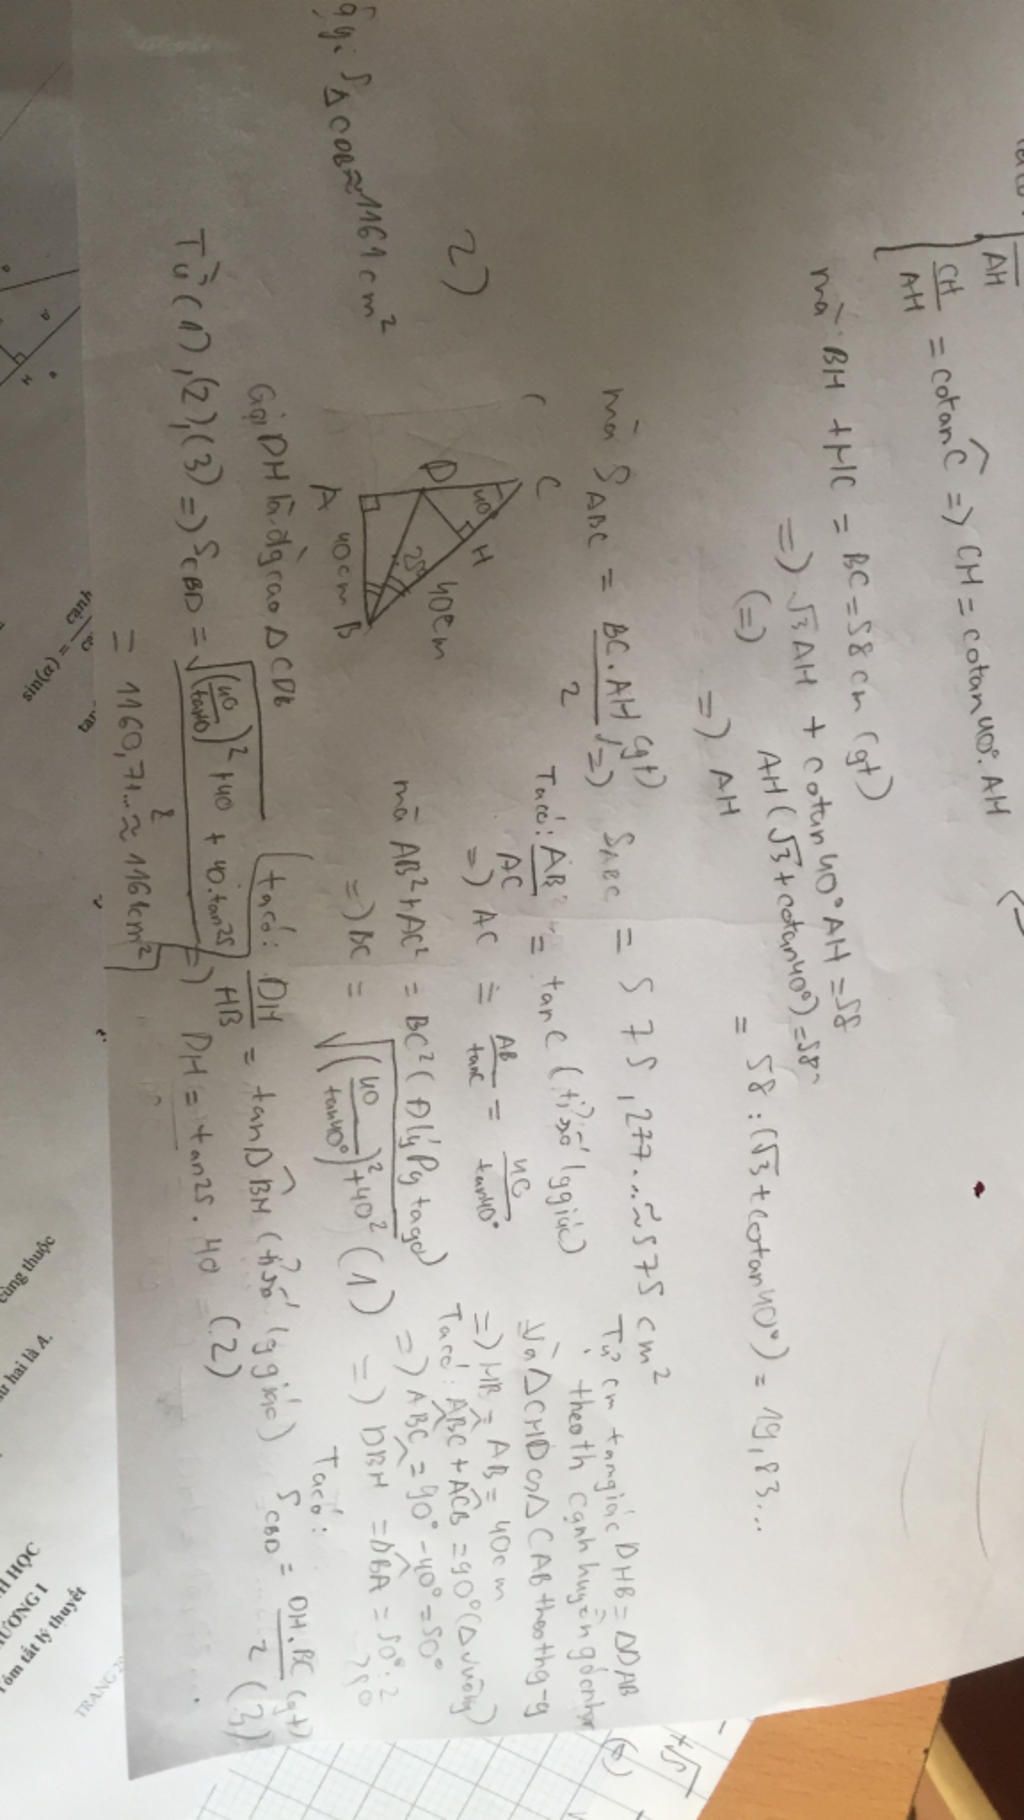 AH
CH/AH = cotan Ĉ => CH = cotan40°. AH
mà: BH + HC = BC = 58cm (gt)
=> √3 AH + cotan40° AH = 58
(=) AH (√3 + cotan40°) = 58
=> AH = 58 : (√3 + cotan40°) = 19,83...
mà S ABC = BC.AH/2 (gt) (=) S ABC = 575,277... ≈ 575 cm²
2)
C
40°
H
D
40cm
25°
A
40cm
B
Ta có: AB/AC = tan C (tỉ số lg giác)
=) AC = AB/tanC = 40/tan40°
mà AB² + AC² = BC² (Đ lý Pytago)
=) BC = √((40/tan40°)² + 40²) (1)
Tự cm tam giác DHB = ΔDAB
theo th cạnh huyền góc nhọn
Và ΔCHD ᔕ Δ CAB theo th g-g
=) HB = AB = 40cm
Ta có: ABĈ + AĈB = 90° (Δ vuông)
=) AB̂C = 90° - 40° = 50°
=) DBH = DB̂A = 50° : 2
Gọi DH là đg cao Δ CDB
ta có: DH/HB = tan DB̂H (tỉ số lg giác)
=) DH = tan25. 40 (2)
Ta có:
S CBD = DH.BC/2 (gt) (3)
Từ (1), (2), (3) =) S CBD = √((40/tan40)² + 40 + 40.tan25/2
= 1160,71... ≈ 1161cm²
Vậy: S Δ CDB ≈ 1161cm²
sin(α) =
cùng thuộc
hai là A.
HỌC
ƯƠNG I
óm tắt lý thuyết
TRANG